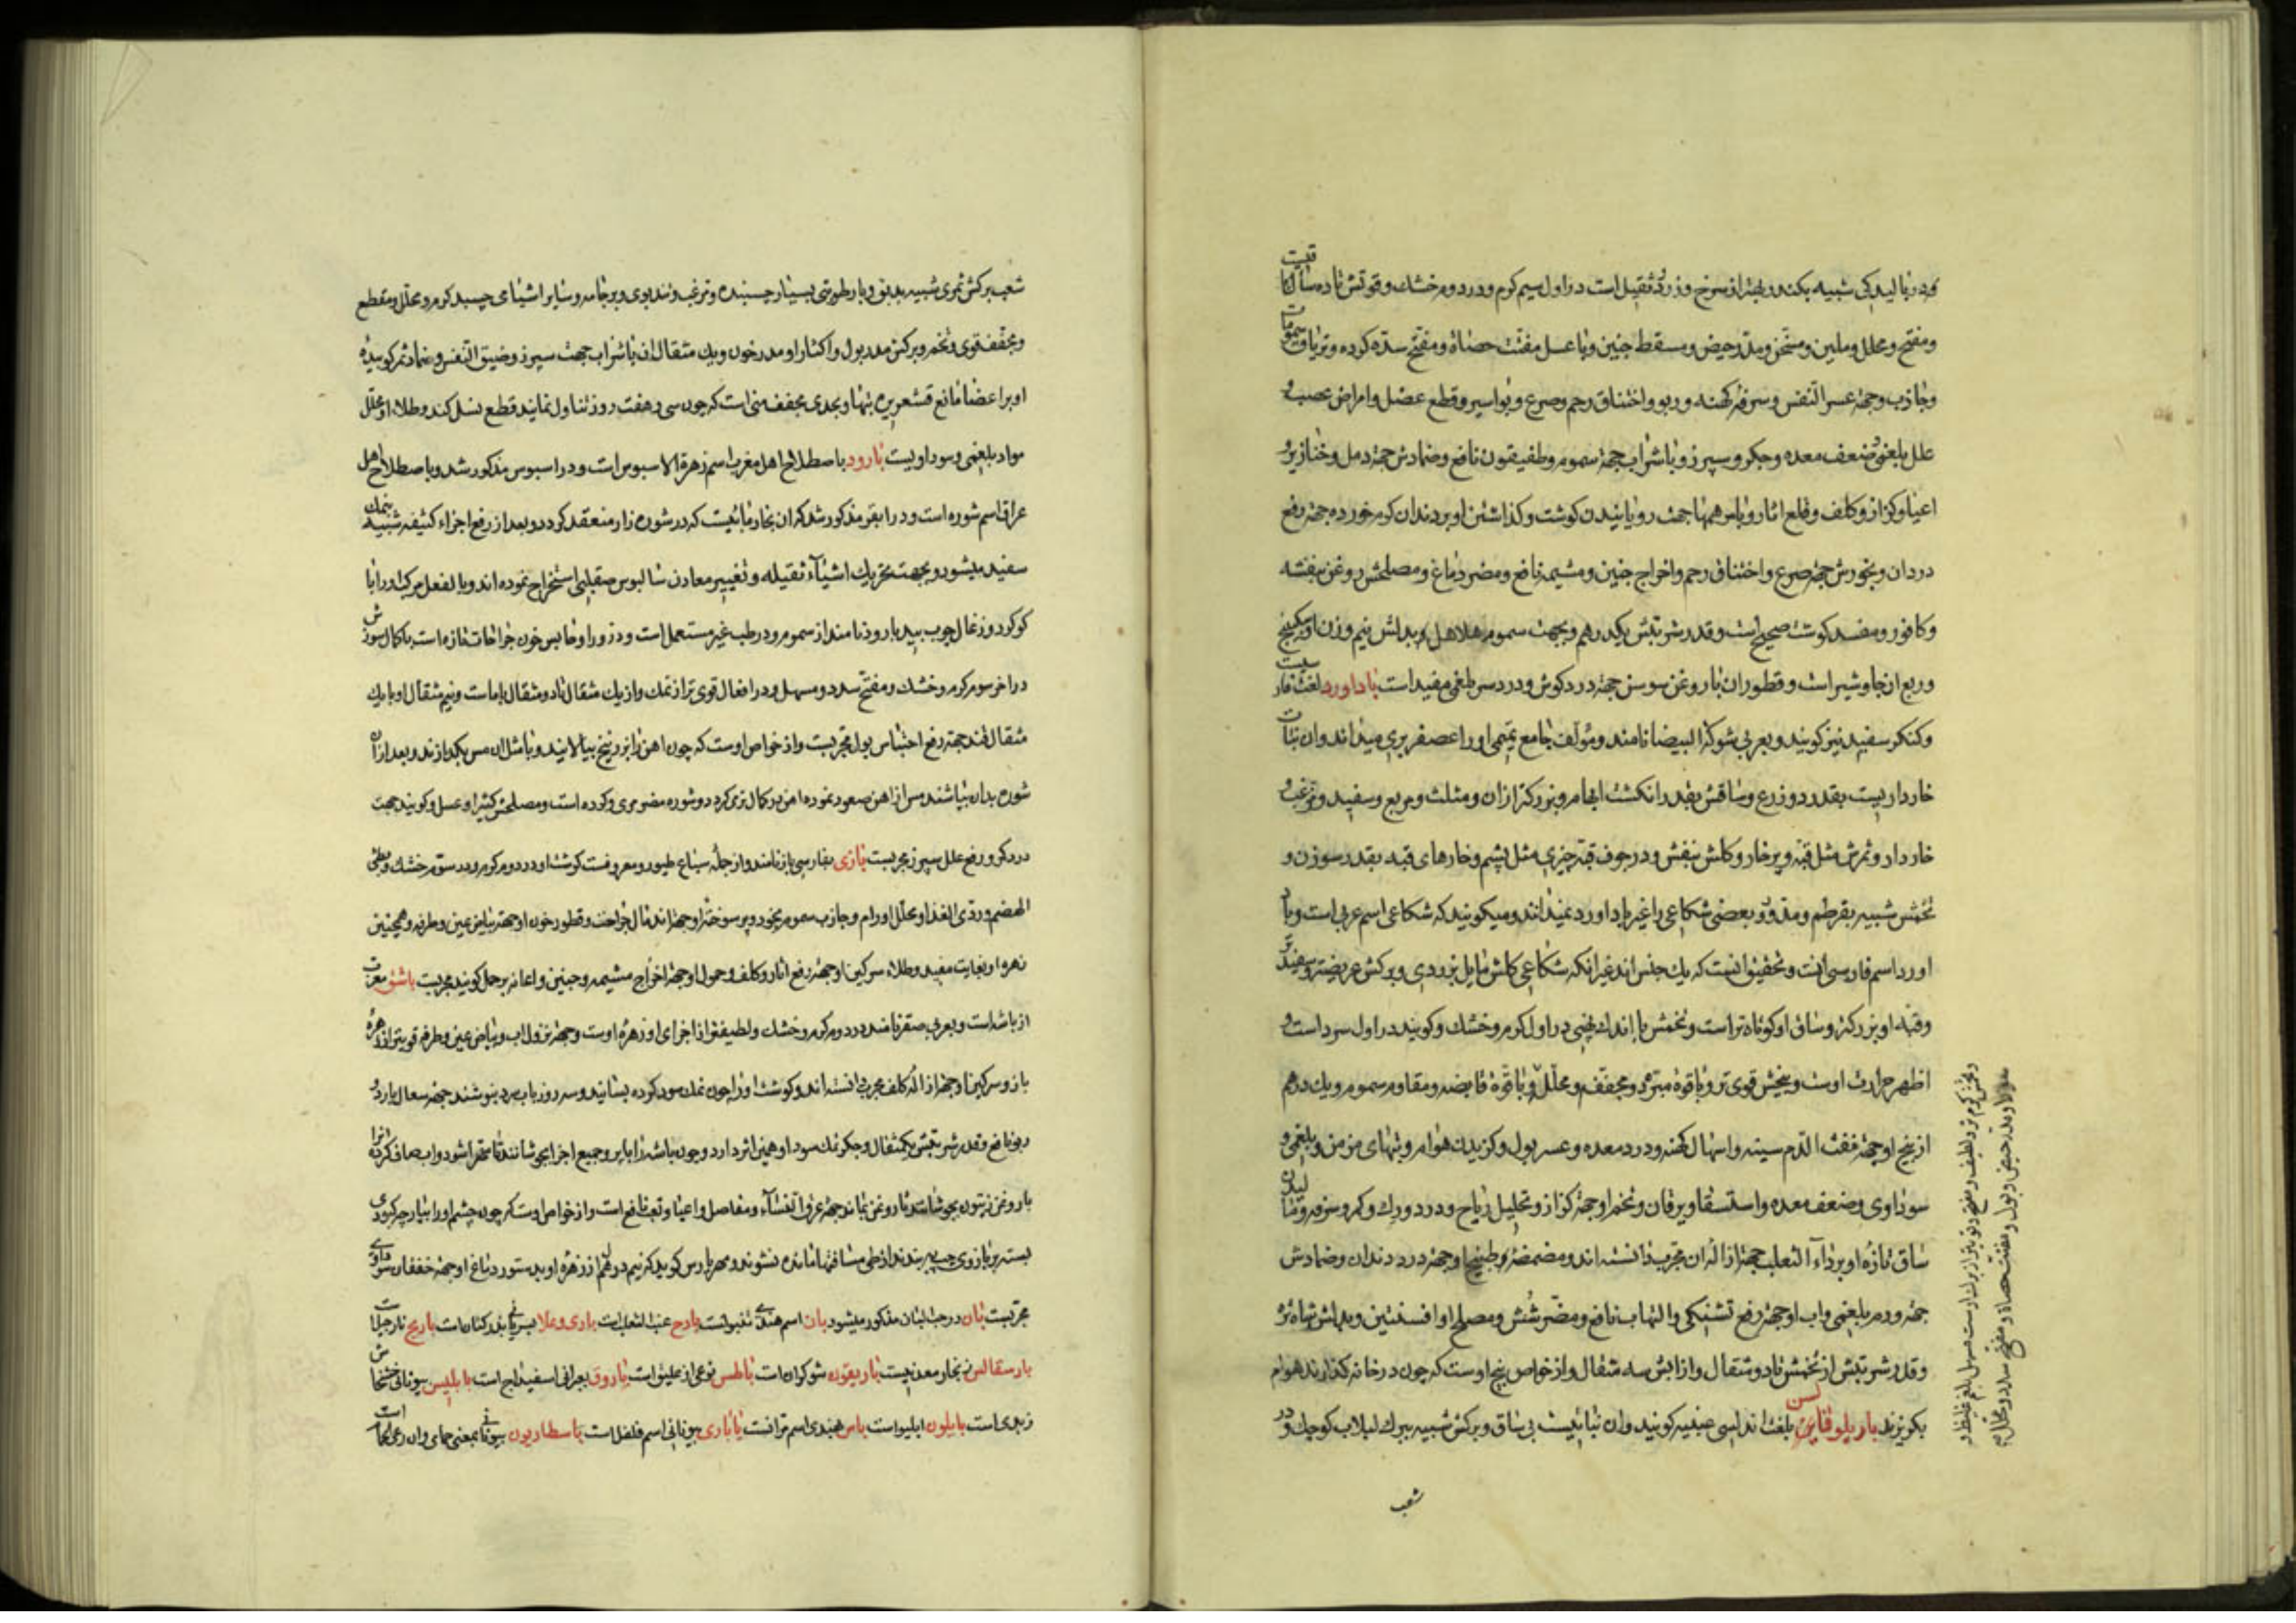 ومفتح ومحلل وملین ومسخن ومدر حیض ومسقط جنین وبا عسل مفتت حصاة ومفتح سده کرده وتریاق سموم
وجاذب وجهة عسر النفس وسرفه کهنه وربو واختناق رحم وصرع وبواسیر وقطع عضل وامراض عصب و
علل بلغمی وضعف معده وجکر وسپرز وبا شراب جهة سموم وطفیقون نافع وضمادش جهة دمل وخنازیر و
اعیا وکزاز وکلف وقلع اثار وبا سرهمها جهت رویانیدن کوشت وکذاشتن او بر دندان کرم خورده جهة رفع
درد ان وبخورش جهة صرع واختناق رحم واخراج جنین ومشیمه نافع ومضر دماغ ومصلحش روغن بنفشه
وکافور ومفسد کوشت صحیح است وقدر شربتش یکدرهم وبجهت سموم هلاهل وبدلش نیم وزن او سکبینج
وربع ان جاوشیر است وقطور ان با روغن سوسن جهة درد کوش ودرد سر بلغمی مفید است باداورد لغت فارسیست
وکنکر سفید نیز کویند وبعربی شوکة البیضا نامند ومؤلف جامع تمیمی او را عصفر بری میداند وان نباتیست
خاردار بیست بقدر دو زرع وساقش بقدر انکشت ابهام وبزرکتر ازان ومثلث ومربع وسفید وبرغب و
خاردار وثمرش مثل قبه وپرخار وکلش بنفش ودر جوف قبه چیزی مثل پشم وخارهای قبه بقدر سوزن و
تخمش شبیه بقرطم ومدور وبعضی شکاعی را غیر باداورد نمیدانند ومیکویند که شکاعی اسم عربی است وباد
اورد اسم فارسی انست وتحقیق انست که یک جنس اند غیر انکه شکاعی کلش مایل بزردی وبرکش عریضتر وسفیدتر
وقبه او بزرکتر وساق او کوتاه تر است وتخمش با اندک تلخی در اول کرم وخشک وکویند در اول سرد است و
اظهر حرارت اوست وبیخش قوی تر وبا قوة مبرده ومجفف ومحلل وبا قوة قابضه ومقاوم سموم ویک درهم
از بیخ او جهة نفث الدم سینه واسهال کهنه ودرد معده وعسر بول وکزیدن هوام وتبهای مزمن وبلغمی و
سوداوی وضعف معده واستسقا ویرقان وتخم او جهة کزاز وتحلیل ریاح ودرد ورک وکمر وسرفه ومالیدن
ساق تازه او بر داء الثعلب جهة ازاله ان مجرب دانسته اند ومضمضه طبیخ او جهة درد دندان وضمادش
جهة ورم بلغمی واب او جهة رفع تشنکی والتهاب نافع ومضر شش ومصلح او افسنتین وبدلش شاه تره
وقدر شربتش از تخمش تا دو مثقال واز ابش سه مثقال واز خواص بیخ اوست که چون در خانه کذارند هوام
بکریزند باریلوقاین بلغت اندلسی صیفیه کویند وان نباتیست بی ساق وبرکش شبیه ببرک لبلاب کوچک ودر
شعب
شعب برکش ثمری شبیه ببندق وبا رطوبتی بسیار چسبنده وتر غب وتند بوی وبر جامه وسایر اشیا می چسبد کرم ومحلل ومقطع
ومجفف قوی وتخم وبرکش مدر بول واکثار او مدر خون ویک مثقال ان با شراب جهت سپرز وضیق النفس وضماد ثمر کوبیده
او بر اعضا مانع قشعریره تبها وبحدی مجفف منی است که چون سی وهفت روز تناول نمایند قطع نسل کند وطلاء او محلل
مواد بلغمی وسوداویست بارود باصطلاح اهل مغرب اسم زهرة الاسیوس است ودر اسیوس مذکور شد وباصطلاح اهل
عراق اسم شوره است ودر ابقر مذکور شد که ان بخار مائیست که در شوره زار منعقد کردد وبعد از رفع اجزاء کثیفه شبیه بنمک
سفید میشود وبجهت تحریک اشیاء ثقیله وتغییر معادن سالیوس صقلی استخراج نموده اند وبالفعل مرکب او را با
کوکرد وزغال چوب بید بارود نامند از سموم ودر طب غیر مستعمل است وذرور او حابس خون جراحات تازه است با کمال سوزش
در اخر سوم کرم وخشک ومفتح سدد ومسهل ودر افعال قوی تر از نمک واز یک مثقال تا دو مثقال با ماست ونیم مثقال او با یک
مثقال قند جهة رفع احتباس بول مجربست واز خواص اوست که چون اهن را بزرنیخ بیالایند وبا مثل ان مس بکدازند وبعد ازان
شوره بدان بپاشند مس از اهن صعود نموده اهن در کمال نرمی کردد وشوره مضر مری وکرده است ومصلحش کتیرا وعسل وکویند جهت
درد کمر ورفع علل سپرز مجربست بازی بفارسی باز نامند واز جمله سباع طیور ومعروفست کوشت او در دوم کرم ودر سوم خشک وبطئ
الهضم وردی الغذا ومحلل اورام وجاذب سموم بخود وپر سوخته او جهة اندمال جراحت وقطور خون او جهة بیاض عین وطرفه وهمچنین
زهره او بغایت مفید وطلاء سرکین او جهة رفع اثار وکلف وحمول او جهة اخراج مشیمه وجنین واعانه بر حمل کویند مجربست باشق معرب
از باشه است وبعربی صقر نامند در دوم کرم وخشک ولطیفتر از اجزای او زهره اوست وجهة نزول اب وبیاض عین وطرفه قویتر از زهره
باز وسرکین او جهة ازاله کلف مجرب دانسته اند وکوشت او را چون نمک سود کرده بسایند وسه روز باب سرد بنوشند جهة سعال بارد و
ربو نافع وقدر شربتش یکمثقال وجکر نمک سود او همین اثر دارد وچون باشه را با پر وجمیع اجزا بجوشانند تا مهرا شود واب صاف کرده انرا
با روغن زیتون بجوشانند تا روغن بماند جهة عرق النساء ومفاصل واعیا وتعب نافع است واز خواص اوست که چون چشم او را بپارچه کبودی
بسته بر بازوی چپ بندند از طی مسافتها مانده نشوند
مجربست بان در حب البان مذکور میشود بان اسم هندی تنبولست بارح عنب الثعلب است باری وعلا بسریانی بذر کتان است بارنج نارجیل است
بارسقالس بنجار معدنیست باریقون شوکران است باطس نوعی از علیق است باروق بعبرانی اسفیداج است بابلیس بیونانی خشخاش
زبدی است بابلون ابلیو است باس هندی اسم ترانست یاباری بیونانی اسم فلفل است باسطاریون بیونانی بمعنی حمامی وان رعی الحمام است